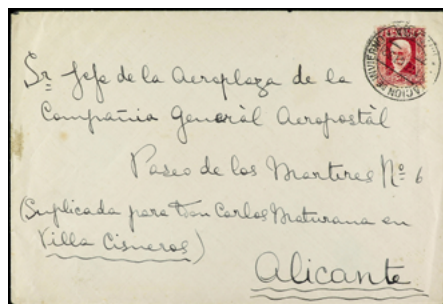 Sr. Jefe de la Aeroplaza de la
Compañia General Aeropostàl
Paseo de los Martires Nº 6
(Suplicada para Don Carlos Maturana en
Villa Cisneros)
Alicante